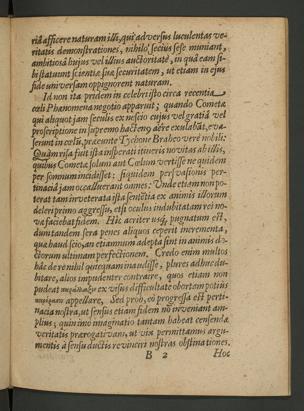 riâ afficere naturam illis, qui adversus luculentas ve-
ritatis demonstrationes, nihilo secius sese muniant,
ambitiosâ hujus vel illius auctoritate, in quâ eam si-
bi statuunt scientiæ suæ securitatem, ut etiam in ejus
fide universam oppignorent naturam.
Id non ita pridem in celebri isto circa recentia
cœli Phænomena negotio apparuit; quando Cometæ
qui aliquot jam seculis ex nescio cujus vel gratiâ vel
proscriptione in supremo hactenus aëre exulabāt, eva-
serunt in cœlū, præeunte Tychone Braheo verè nobili.
Quàm risæ fuit ista insperati itineris novitas ab illis,
quibus Cometæ solum aut Cœlum vertisse ne quidem
per somnium incidisset: siquidem persuasionis per-
tinacia jam occalluerant omnes: Unde etiam non po-
terat tam inveterata ista sententia ex animis illorum
deleri primo aggressu, etsi oculus indubitatam rei no-
va faciebat fidem. Hîc acriter usq; pugnatum est,
dum tandem sera penes aliquos ceperit incrementa,
quæ haud scio, an etiamnum adepta sint in animis do-
ctorum ultimam perfectionem. Credo enim multos
hâc de re nihil quicquam inaudisse, plures adhuc du-
bitare, alios impudenter contrarie, quos etiam non
pudeat ex visus difficultate obortam potius
appellare. Sed proh, eò progressa est perti-
nacia nostra, ut sensus etiam fidem nō inveniant am-
plius; quin imò imaginatio tantam habeat censendæ
veritatis prærogativam, ut vix permittamus argu-
mentis à sensu ductis revinceri nostras obstinationes.
B 2 Hoc